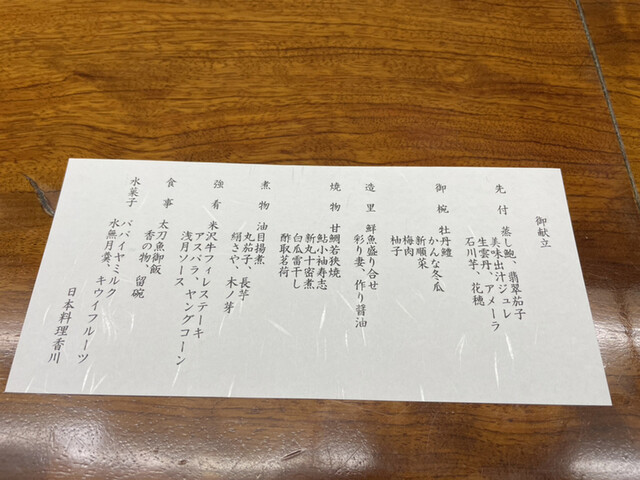 御献立
先付 蒸し鮑、翡翠茄子
美味出汁ジュレ
生雲丹、アメーラ
石川芋、花穂
御椀 牡丹鱧
かんな冬瓜
新順菜
梅肉
柚子
造里 鮮魚盛り合せ
彩り妻、作り醤油
焼物 甘鯛若狭焼
鮎小袖寿志
新丸十密煮
白瓜雷干し
酢取茗荷
煮物 油目揚煮
丸茄子、長芋
絹さや、木ノ芽
強肴 米沢牛フィレステーキ
アスパラ、ヤングコーン
浅月ソース
食事 太刀魚御飯
香の物 留碗
水菓子 パパイヤミルク
水無月羹、キウイフルーツ
日本料理香川